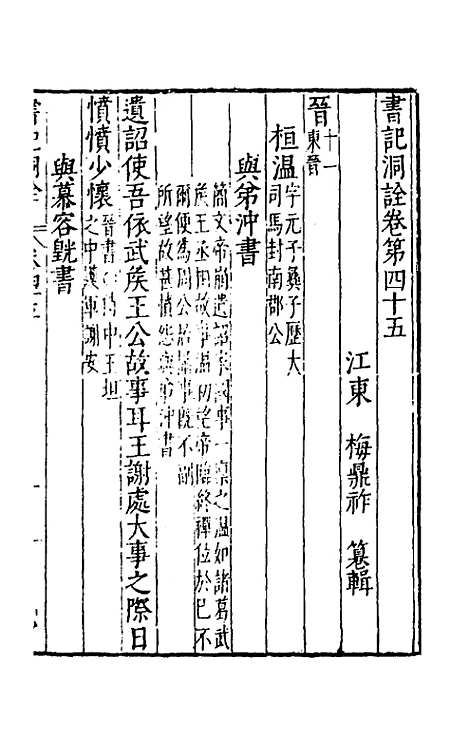 書記洞詮卷第四十五
江東 梅鼎祚 纂輯
晉十一
東晉
桓溫字元子彝子歷大
司馬封南郡公
與弟沖書
簡文帝崩遺詔家國事一稟之溫如諸葛武
侯王丞相故事溫初望帝臨終禪位於己不
爾便為周公居攝事既不副
所望故甚憤怨與弟沖書
遺詔使吾依武侯王公故事耳王謝處大事之際日
憤憤少懷晉書
之中王坦
與慕容皝書